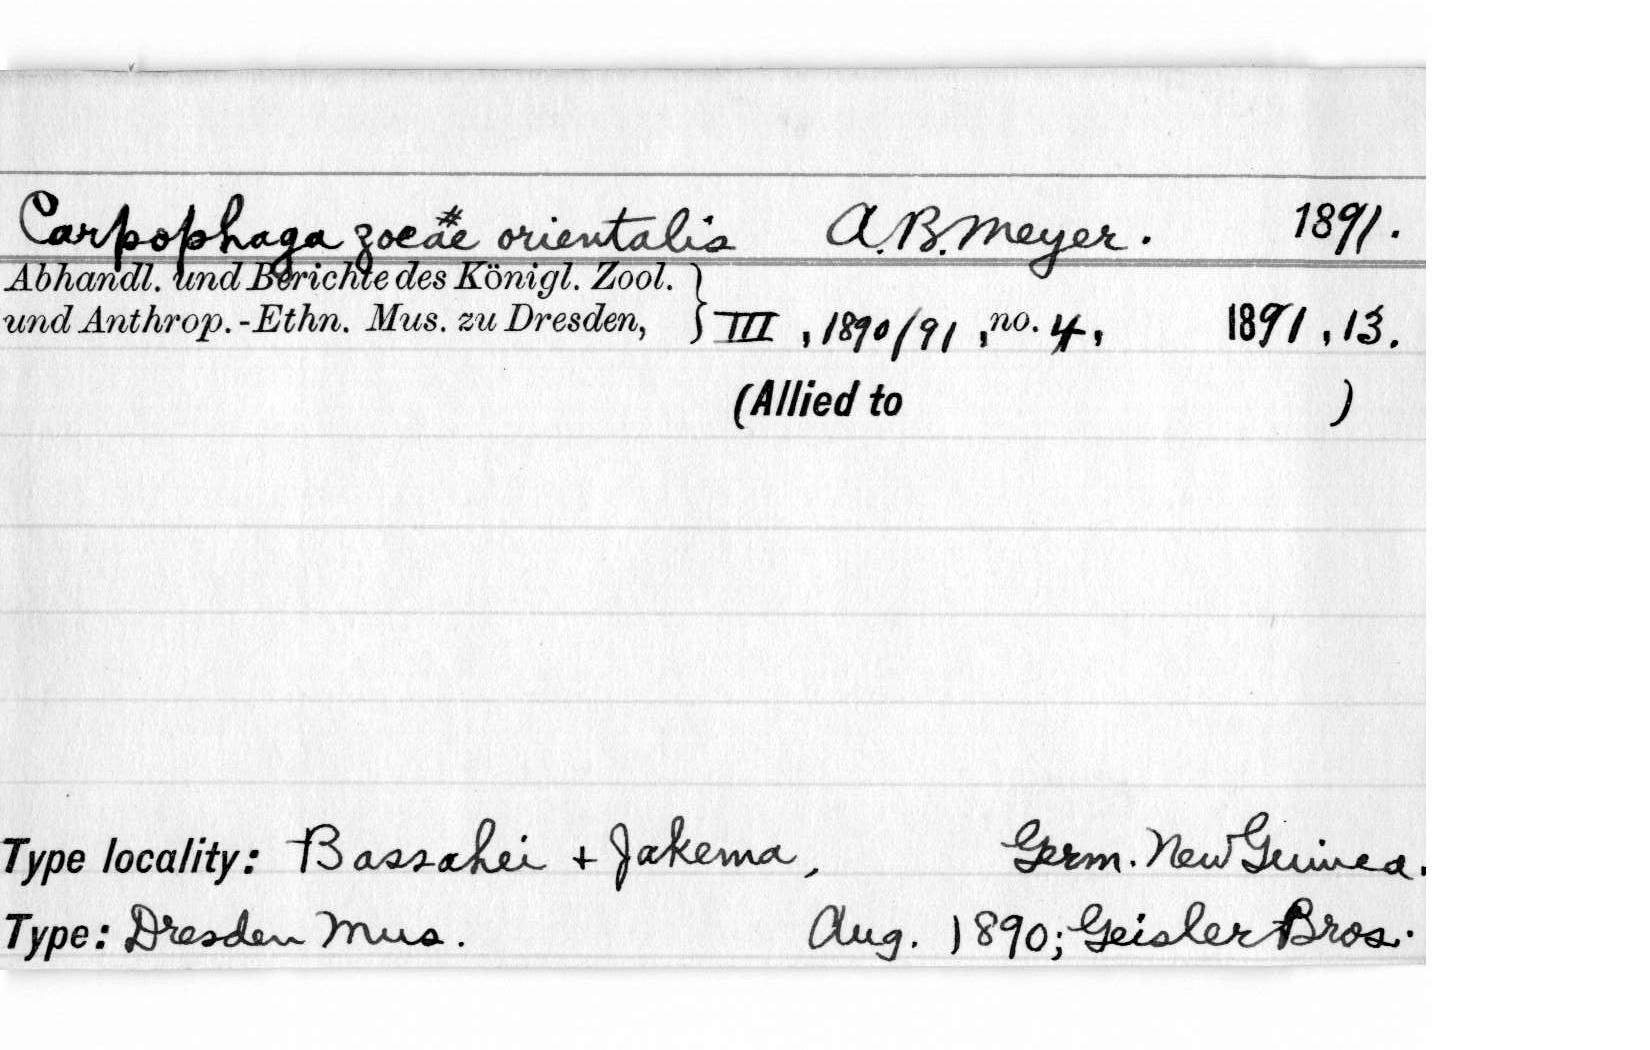 Carpophaga zoeae orientalis A.B. Meyer. 1891.
Abhandl. und Berichte des Königl. Zool.
und Anthrop.-Ethn. Mus. zu Dresden, } III, 1890/91, no. 4, 1891, 13.
(Allied to )
Type locality: Bassahei + Jakema, Germ. New Guinea.
Type: Dresden Mus. Aug. 1890; Geisler Bros.